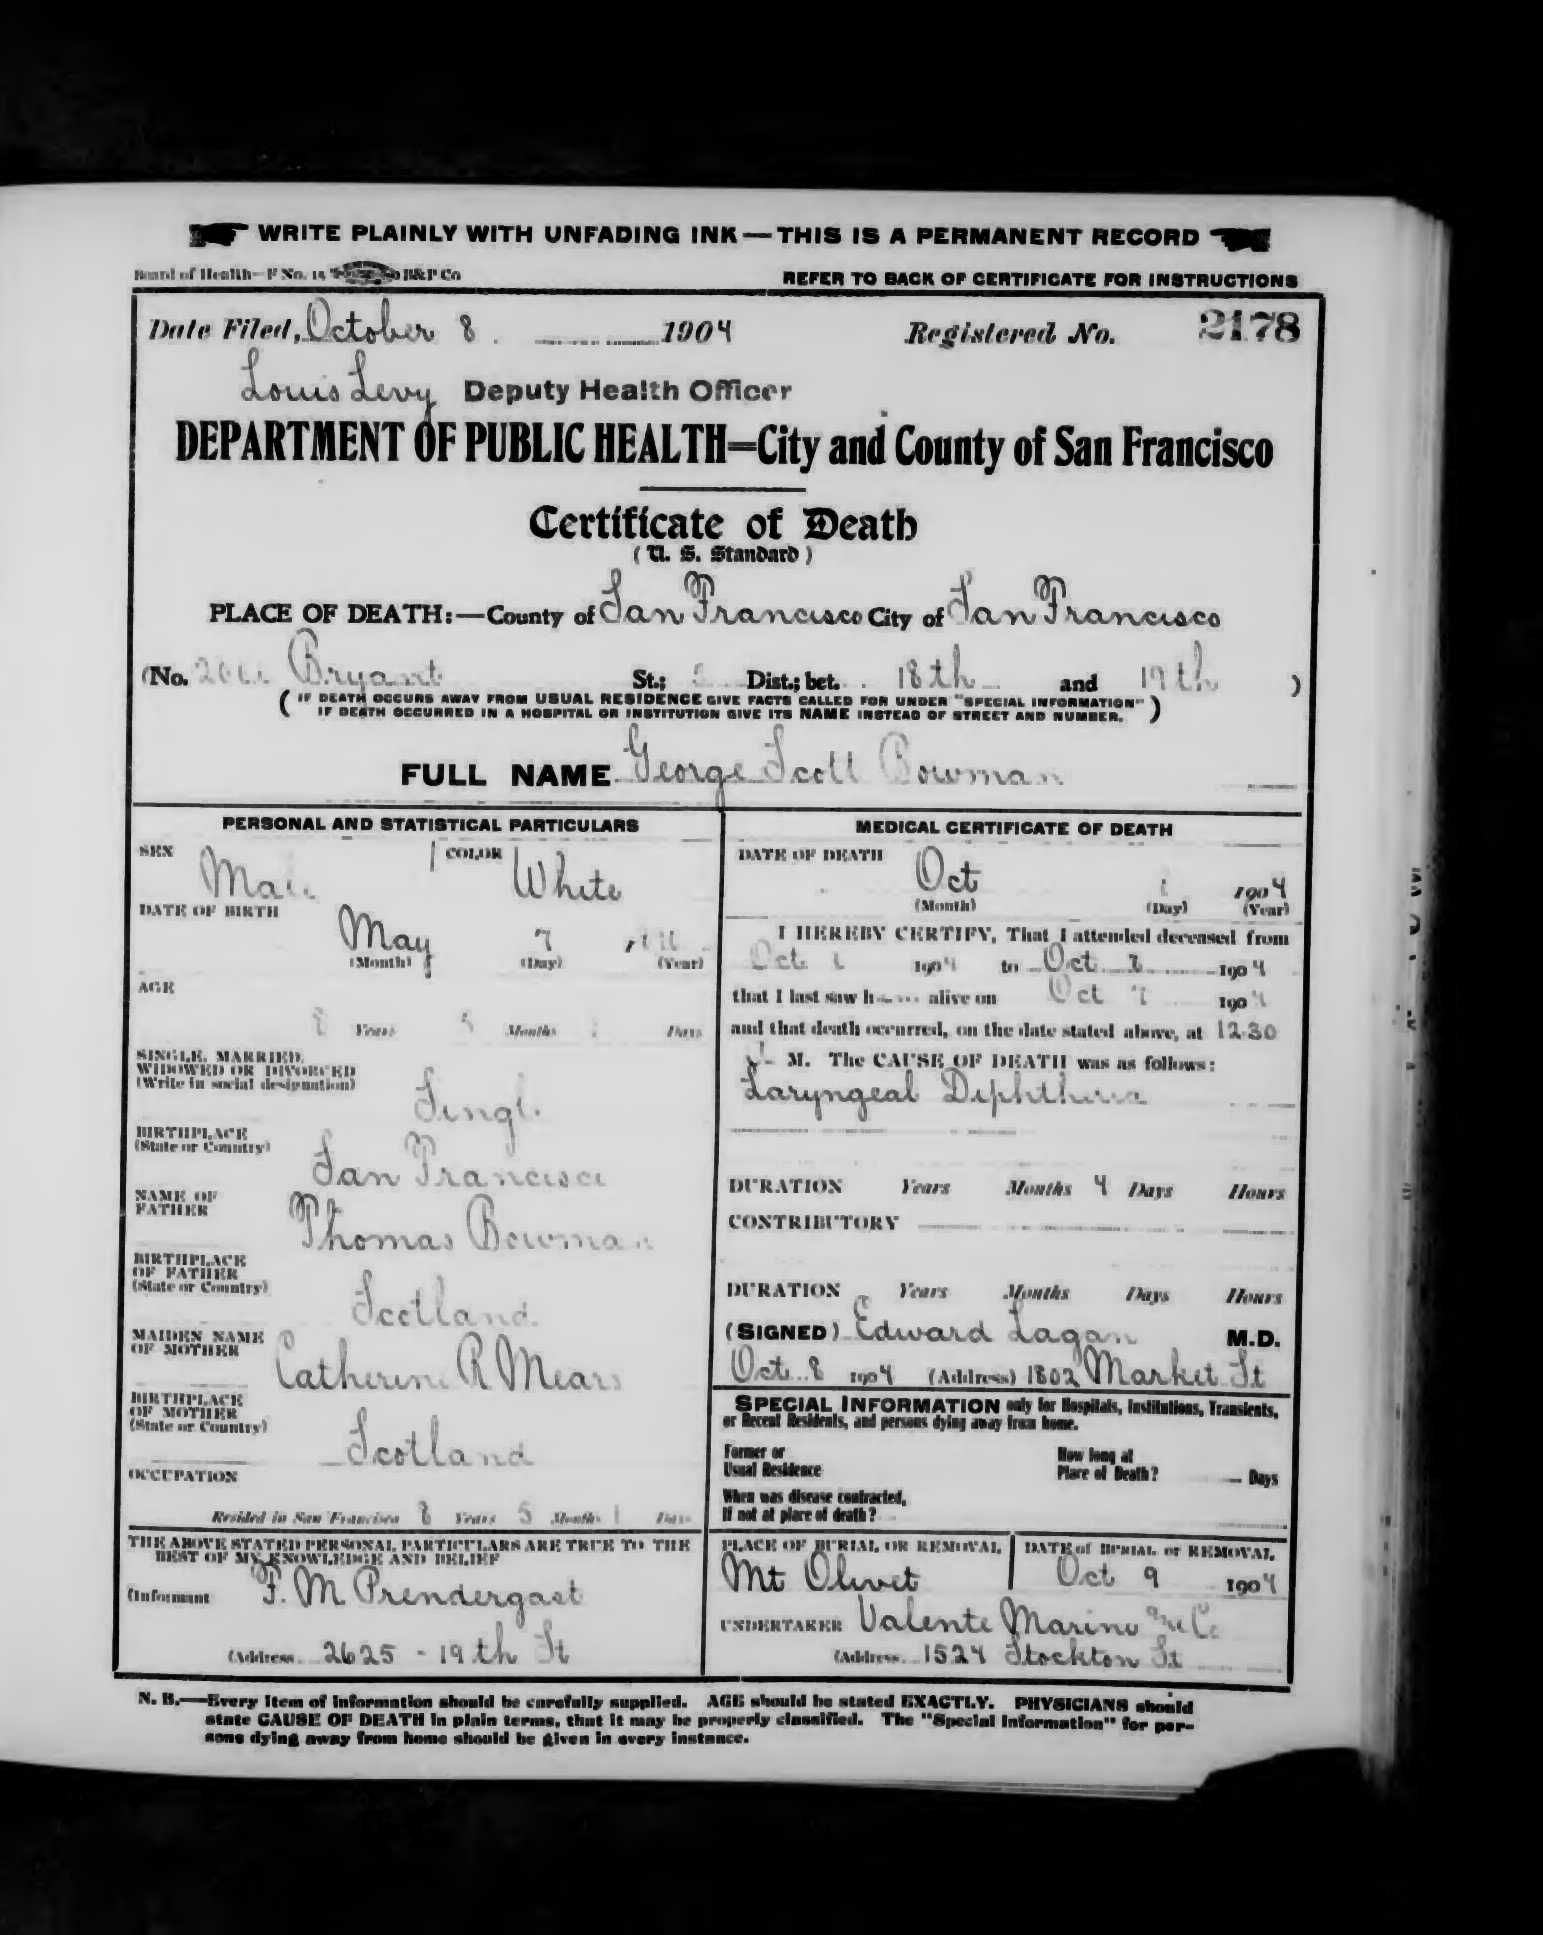 WRITE PLAINLY WITH UNFADING INK — THIS IS A PERMANENT RECORD
Board of Health—F No. 15 B&P Co
REFER TO BACK OF CERTIFICATE FOR INSTRUCTIONS
Date Filed, October 8. 1904 Registered No. 2178
Louis Levy Deputy Health Officer
DEPARTMENT OF PUBLIC HEALTH=City and County of San Francisco
Certificate of Death
(U. S. Standard)
PLACE OF DEATH:—County of San Francisco City of San Francisco
(No. Bryant St.; Dist.; bet. 18th and 19th )
( IF DEATH OCCURS AWAY FROM USUAL RESIDENCE GIVE FACTS CALLED FOR UNDER "SPECIAL INFORMATION"
IF DEATH OCCURRED IN A HOSPITAL OR INSTITUTION GIVE ITS NAME INSTEAD OF STREET AND NUMBER. )
FULL NAME George Scott Bowman
PERSONAL AND STATISTICAL PARTICULARS
SEX Male COLOR White
DATE OF BIRTH May 7
(Month) (Day) (Year)
AGE
8 Years 5 Months Days
SINGLE, MARRIED,
WIDOWED OR DIVORCED
(Write in social designation)
Single
BIRTHPLACE
(State or Country)
San Francisco
NAME OF
FATHER
Thomas Bowman
BIRTHPLACE
OF FATHER
(State or Country)
Scotland
MAIDEN NAME
OF MOTHER
Catherine R Mears
BIRTHPLACE
OF MOTHER
(State or Country)
Scotland
OCCUPATION
Resided in San Francisco 8 Years 5 Months 1 Days
THE ABOVE STATED PERSONAL PARTICULARS ARE TRUE TO THE
BEST OF MY KNOWLEDGE AND BELIEF
(Informant F. M. Prendergast
(Address 2625 - 19th St
MEDICAL CERTIFICATE OF DEATH
DATE OF DEATH Oct 1904
(Month) (Day) (Year)
I HEREBY CERTIFY, That I attended deceased from
Oct 1904 to Oct 1904
that I last saw h alive on Oct 1904
and that death occurred, on the date stated above, at 12.30
M. The CAUSE OF DEATH was as follows:
Laryngeal Diphtheria
DURATION Years Months 4 Days Hours
CONTRIBUTORY
DURATION Years Months Days Hours
(SIGNED) Edward Lagan M.D.
Oct. 8 1904 (Address) 1802 Market St
SPECIAL INFORMATION only for Hospitals, Institutions, Transients,
or Recent Residents, and persons dying away from home.
Former or
Usual Residence
How long at
Place of Death? Days
When was disease contracted,
If not at place of death?
PLACE OF BURIAL OR REMOVAL
Mt Olivet
DATE of BURIAL or REMOVAL
Oct 9 1904
UNDERTAKER Valente Marini & Co
(Address 1524 Stockton St
N. B.—Every item of information should be carefully supplied. AGE should be stated EXACTLY. PHYSICIANS should
state CAUSE OF DEATH in plain terms, that it may be properly classified. The "Special Information" for per-
sons dying away from home should be given in every instance.